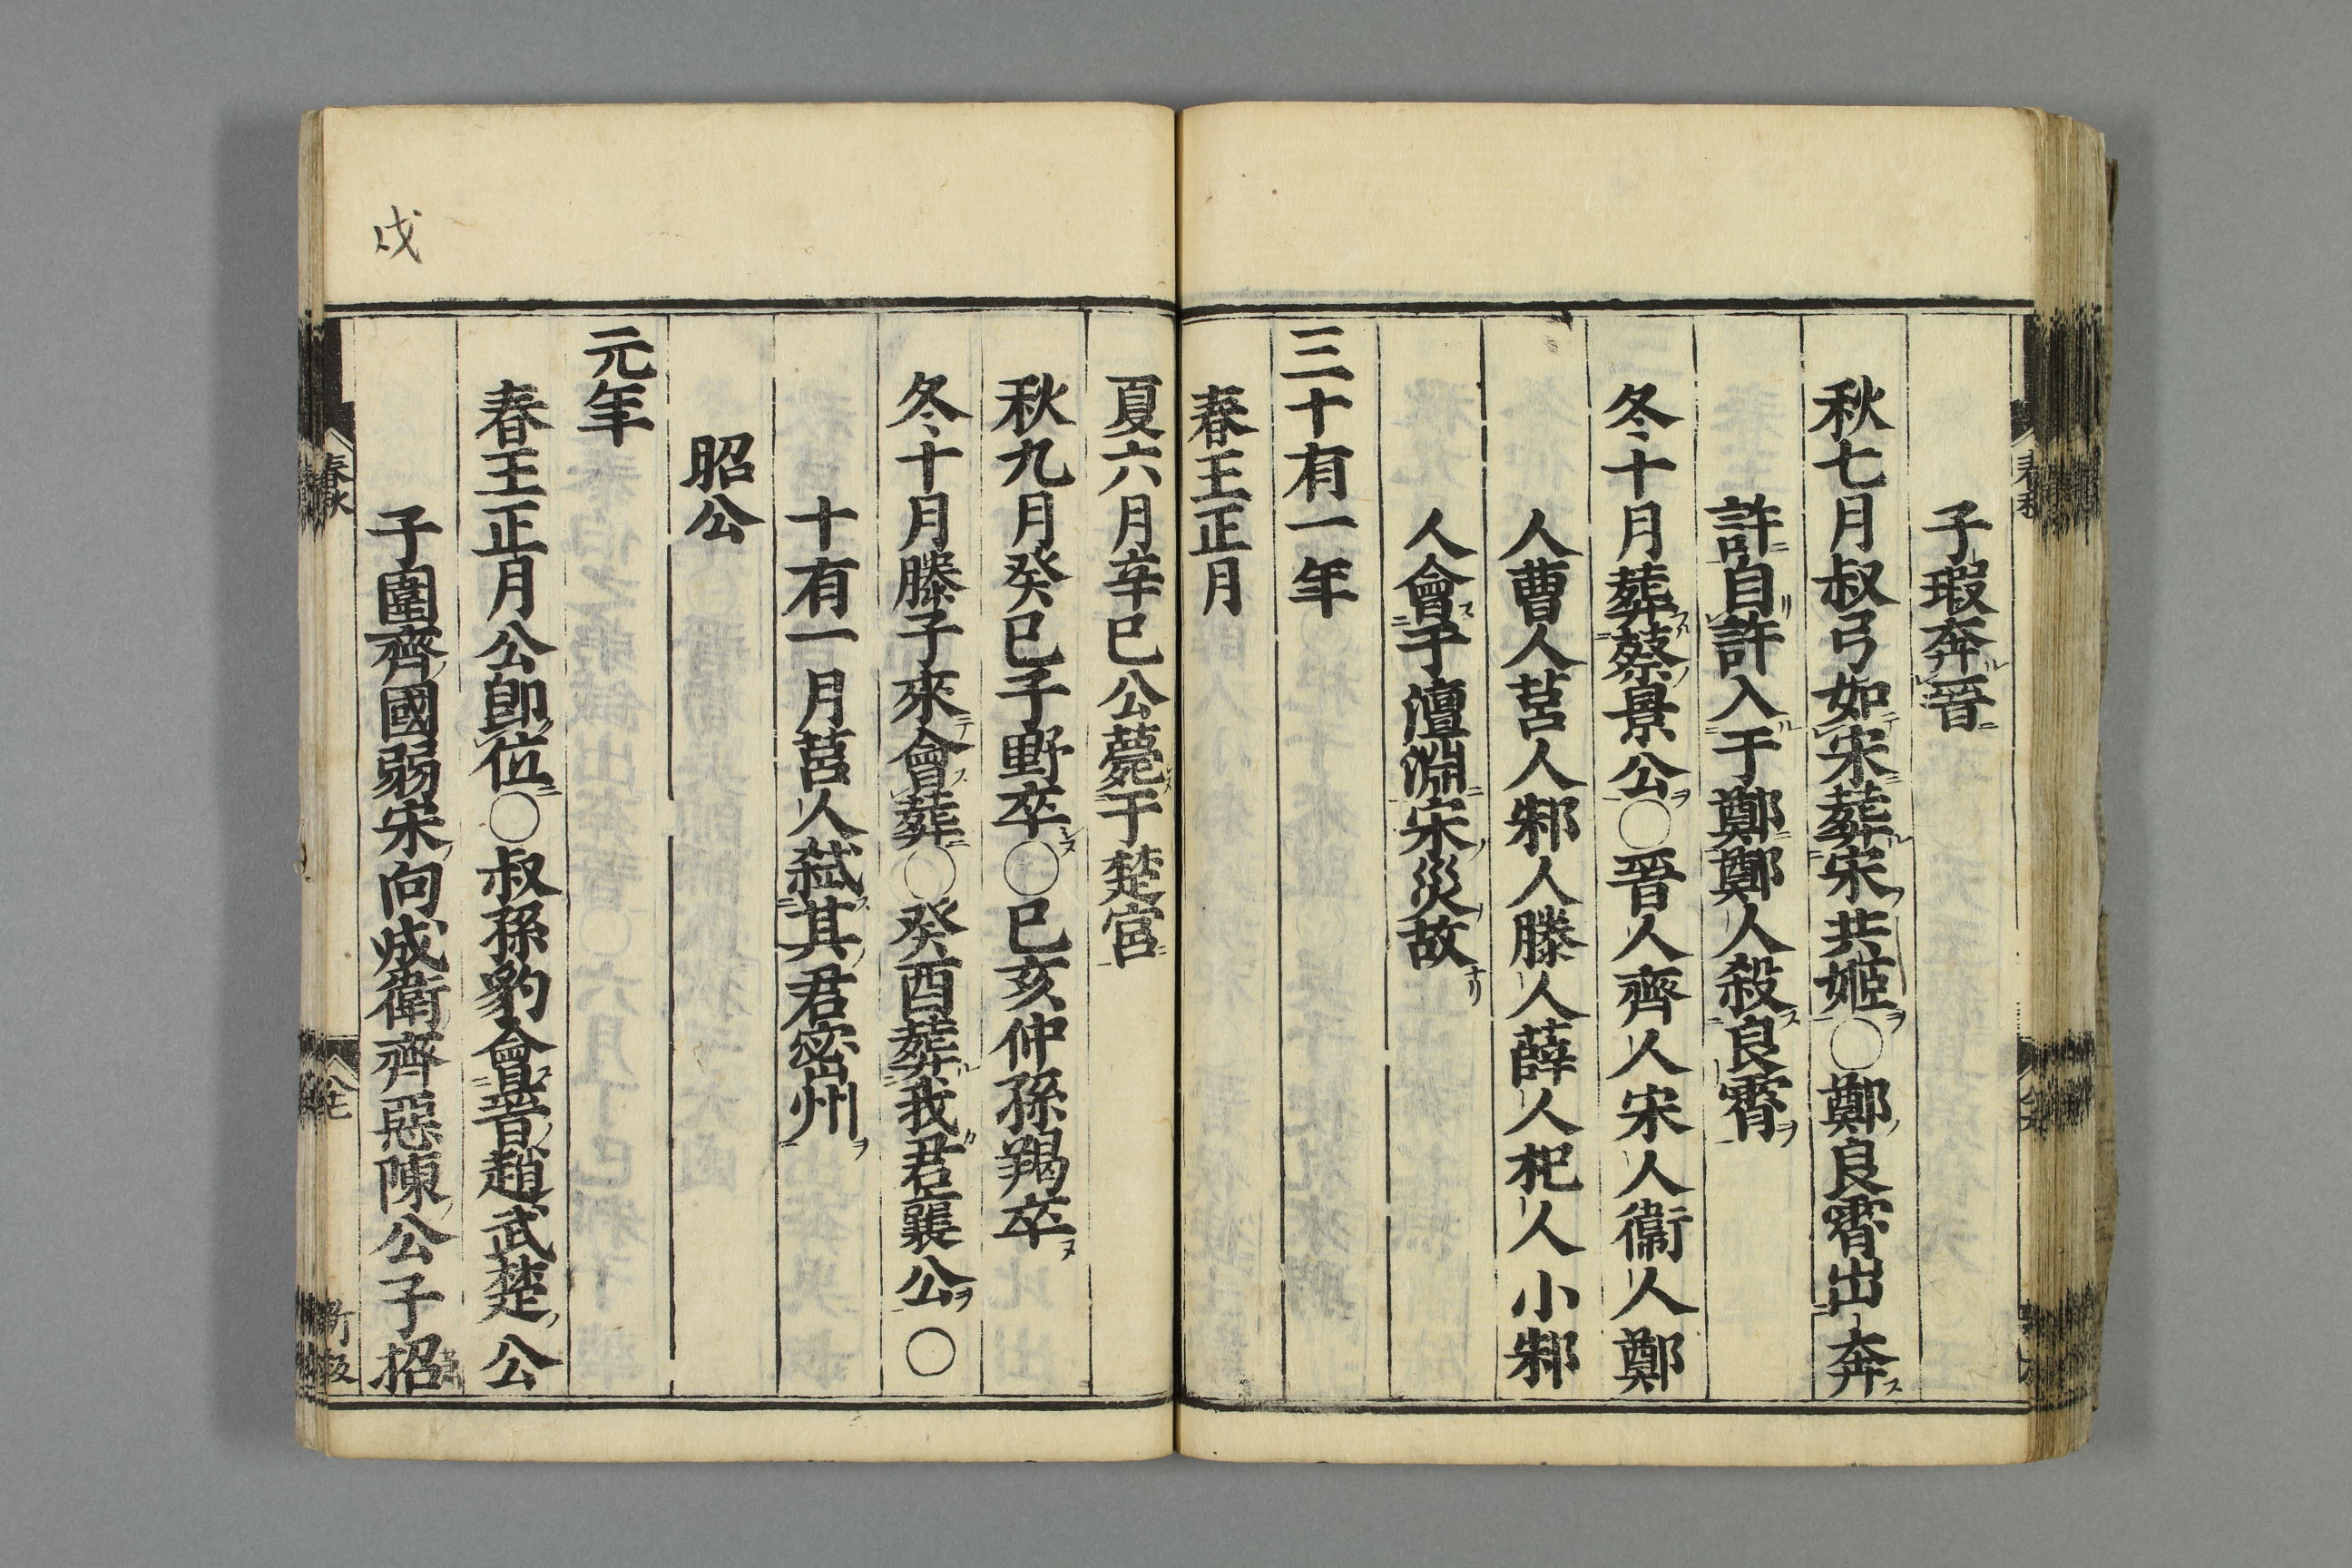 子瑕奔晉
秋七月叔弓如宋葬宋共姬○鄭良霄出奔
許自許入于鄭鄭人殺良霄
冬十月葬蔡景公○晉人齊人宋人衞人鄭
人曹人莒人邾人滕人薛人杞人小邾
人會于澶淵宋災故
三十有一年
春王正月
夏六月辛巳公薨于楚宮
秋九月癸巳子野卒○巳亥仲孫羯卒
冬十月滕子來會葬○癸酉葬我君襄公○
十有一月莒人弑其君密州
昭公
元年
春王正月公卽位○叔孫豹會晉趙武楚公
子圍齊國弱宋向戌衛齊惡陳公子招
戌
春秋
新板